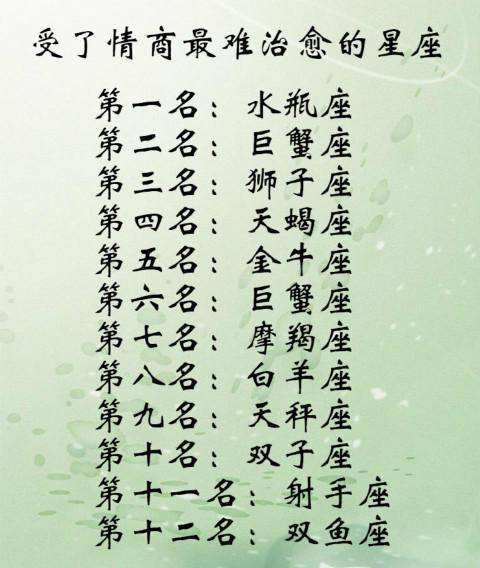 受了情商最难治愈的星座
第一名：水瓶座
第二名：巨蟹座
第三名：狮子座
第四名：天蝎座
第五名：金牛座
第六名：巨蟹座
第七名：摩羯座
第八名：白羊座
第九名：天秤座
第十名：双子座
第十一名：射手座
第十二名：双鱼座